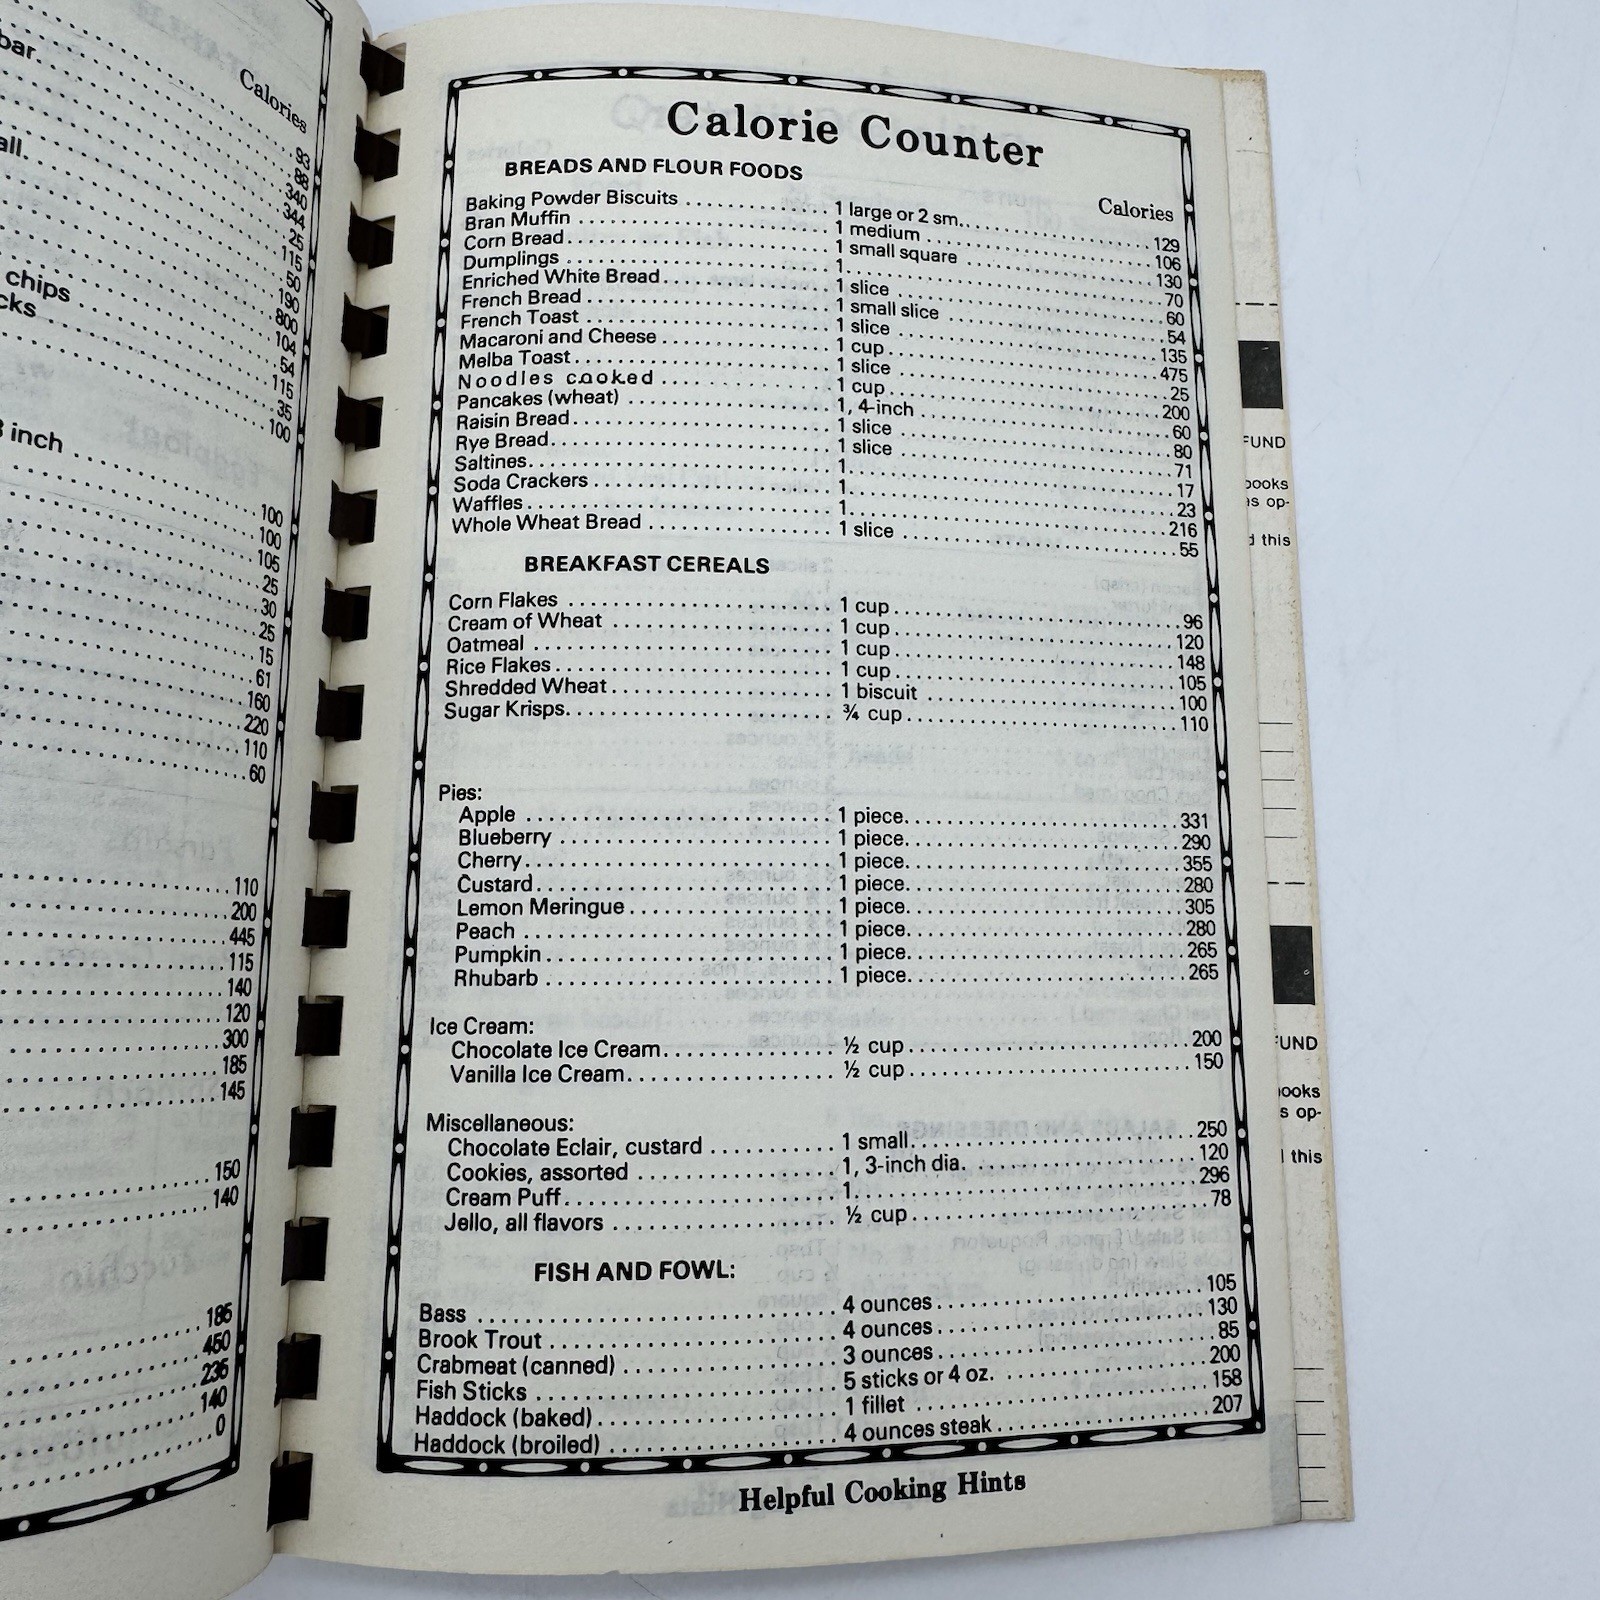 bar
Calories
93
88
all.
340
344
25
115
50
190
chips
800
cks
104
54
115
35
100
3 inch
100
100
105
25
30
25
15
61
160
220
110
60
110
200
445
115
140
120
300
185
145
150
140
185
450
235
140
0
Calorie Counter
BREADS AND FLOUR FOODS
Calories
Baking Powder Biscuits 1 large or 2 sm. 129
Bran Muffin 1 medium 106
Corn Bread 1 small square 130
Dumplings 1 70
Enriched White Bread 1 slice 60
French Bread 1 small slice 54
French Toast 1 slice 135
Macaroni and Cheese 1 cup 475
Melba Toast 1 slice 25
Noodles cooked 1 cup 200
Pancakes (wheat) 1, 4-inch 60
Raisin Bread 1 slice 80
Rye Bread 1 slice 71
Saltines 1 17
Soda Crackers 1 23
Waffles 1 216
Whole Wheat Bread 1 slice 55
BREAKFAST CEREALS
Corn Flakes 1 cup 96
Cream of Wheat 1 cup 120
Oatmeal 1 cup 148
Rice Flakes 1 cup 105
Shredded Wheat 1 biscuit 100
Sugar Krisps ¾ cup 110
Pies:
Apple 1 piece 331
Blueberry 1 piece 290
Cherry 1 piece 355
Custard 1 piece 280
Lemon Meringue 1 piece 305
Peach 1 piece 280
Pumpkin 1 piece 265
Rhubarb 1 piece 265
Ice Cream:
Chocolate Ice Cream ½ cup 200
Vanilla Ice Cream ½ cup 150
Miscellaneous:
Chocolate Eclair, custard 1 small 250
Cookies, assorted 1, 3-inch dia. 120
Cream Puff 1 296
Jello, all flavors ½ cup 78
FISH AND FOWL:
Bass 4 ounces 105
Brook Trout 4 ounces 130
Crabmeat (canned) 3 ounces 85
Fish Sticks 5 sticks or 4 oz. 200
Haddock (baked) 1 fillet 158
Haddock (broiled) 4 ounces steak 207
Helpful Cooking Hints
FUND
books
as op-
d this
FUND
books
s op-
this